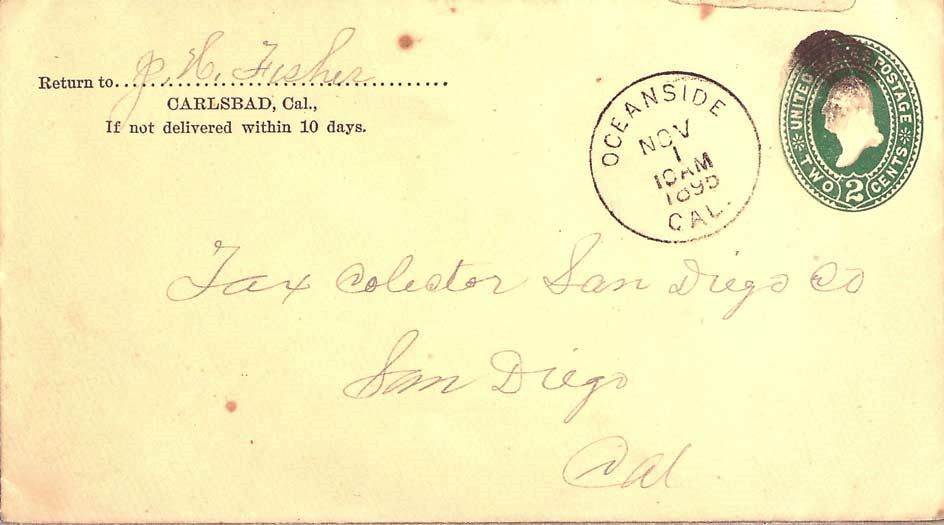 J. H. Fisher
Return to
CARLSBAD, Cal.,
If not delivered within 10 days.
OCEANSIDE
NOV
1
10AM
1895
CAL.
UNITED STATES POSTAGE
TWO 2 CENTS
Tax Colector San Diego Co
San Diego
Cal